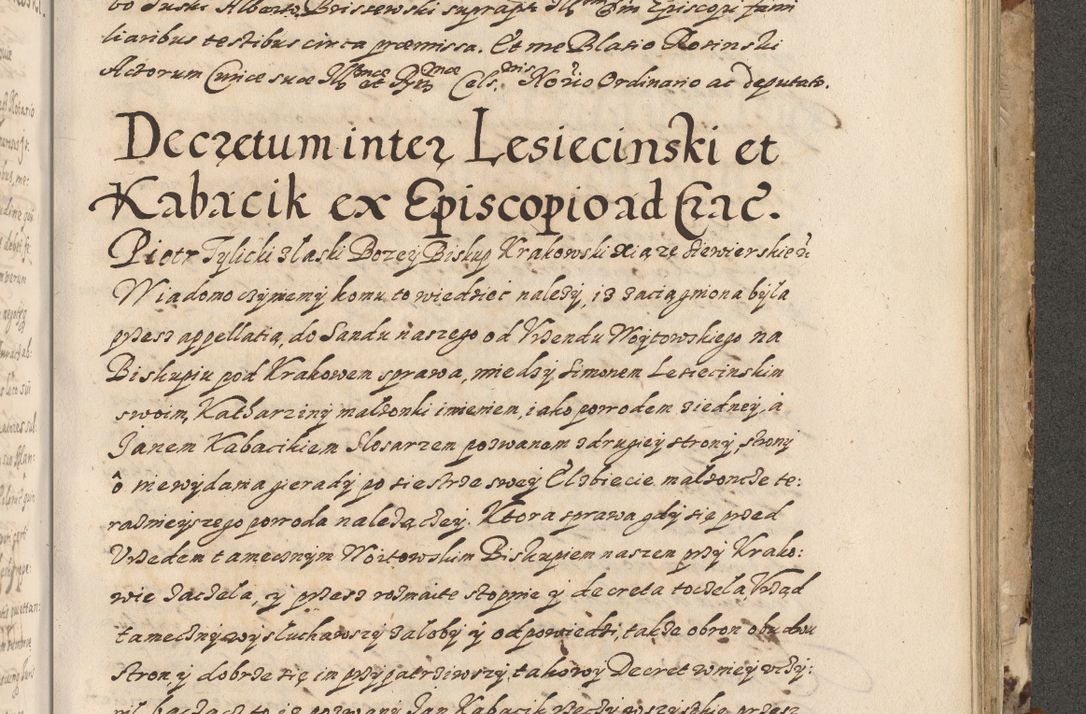 liaribus testibus circa præmissa. Et me Blasio Kosinski
Actorum Ordinario ac deputato.
Decretum inter Lesiecinski et
Kabacik ex Episcopio ad Crac.
Piotr Tylicki z laski Bozey Biskup Krakowski Xiąze Siewierskie
Wiadomo czyniemy komu to wiedzieć nalezy, iz zaciągniona była
przez appellatią, do Sandu naszego od Vrzendu Woytowskiego na
Biskupiu pod Krakowem sprawa, miedzy Simonem Lesiecinskim
swoim, Katharziny malzonki imieniem, iako powodem ziedney, a
Janem Kabacikiem slosarzem pozwanem z drugiey strony, strony
o niewydania gierady po siestrze swey Elzbiecie malzonce te:
raznieyszego powoda nalezączey. Ktora sprawa gdy się przed
Vrzedem tamecznym Woitowskim Biskupiem naszem przy Krako:
wie zaczela, y przez rozmaite stopnie y decreta toczela, Vrząd
tameczny wysluchawszy zaloby y odpowiedzi, takze obron obudwu
stron, y dobrze się im przypatrziwszy, takowy Decret w niey vczy:
nil